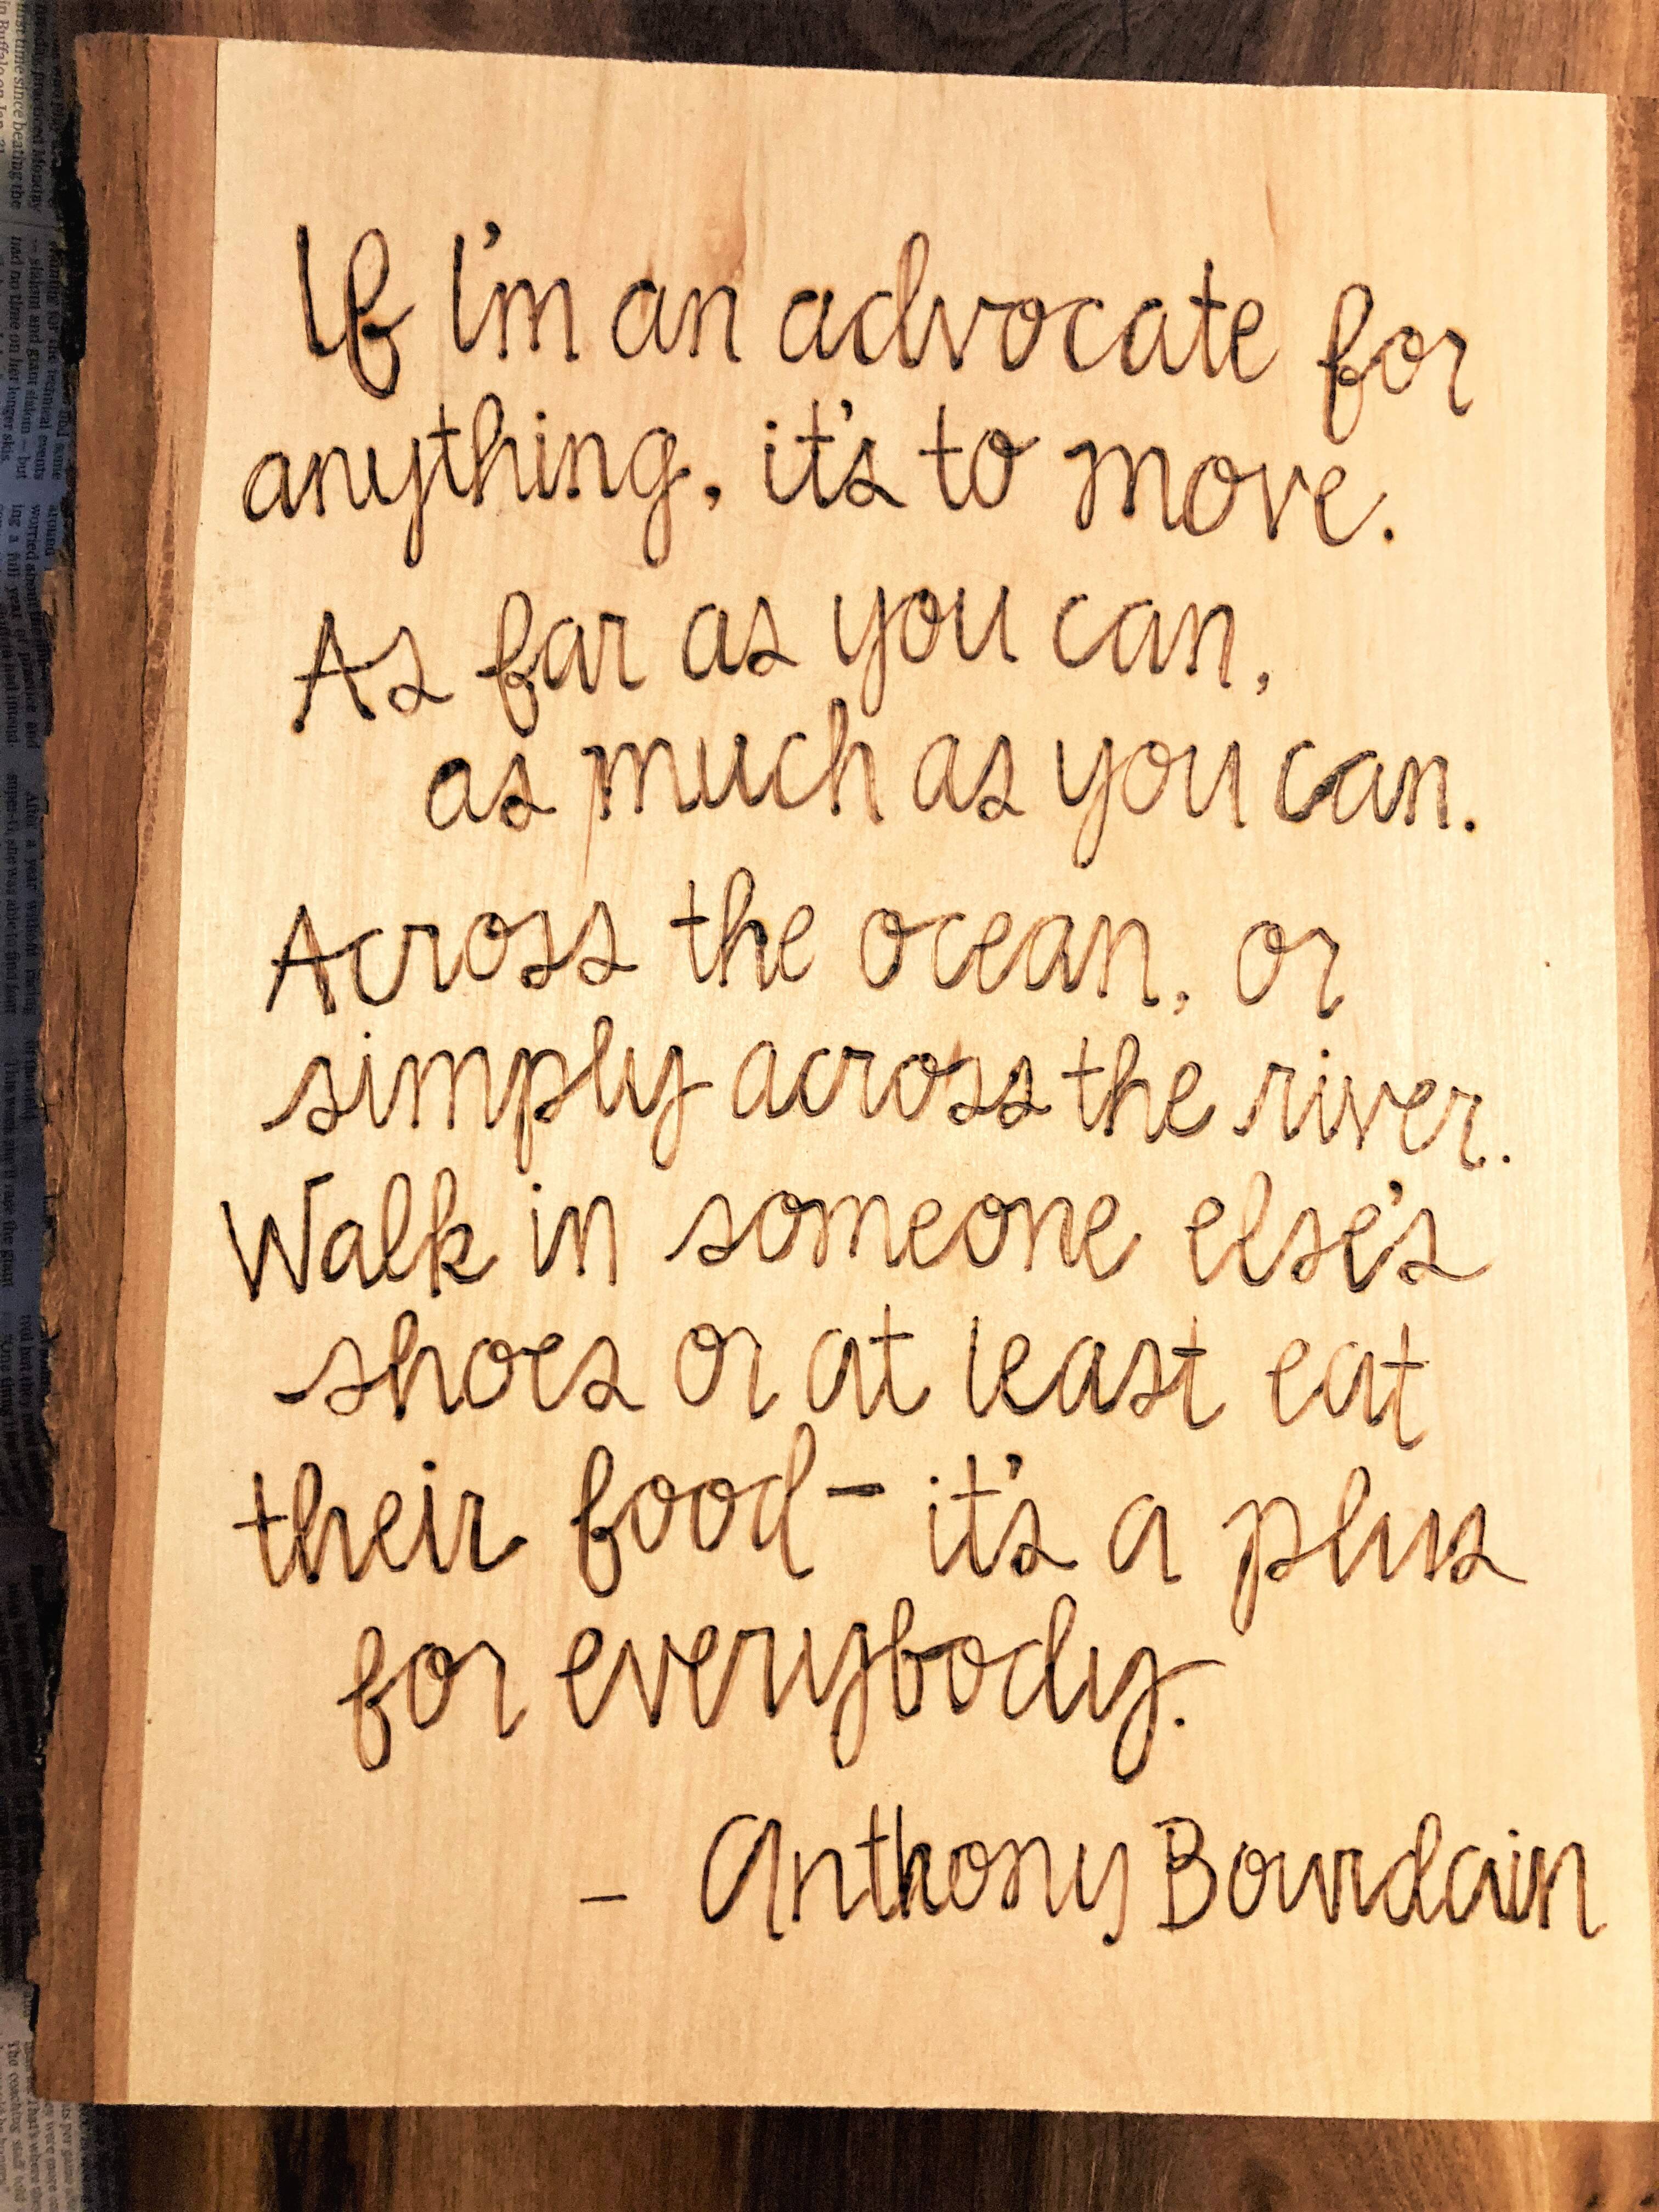 If I'm an advocate for
anything, it's to move.
As far as you can,
as much as you can.
Across the ocean, or
simply across the river.
Walk in someone else's
shoes or at least eat
their food - it's a plus
for everybody.
- Anthony Bourdain